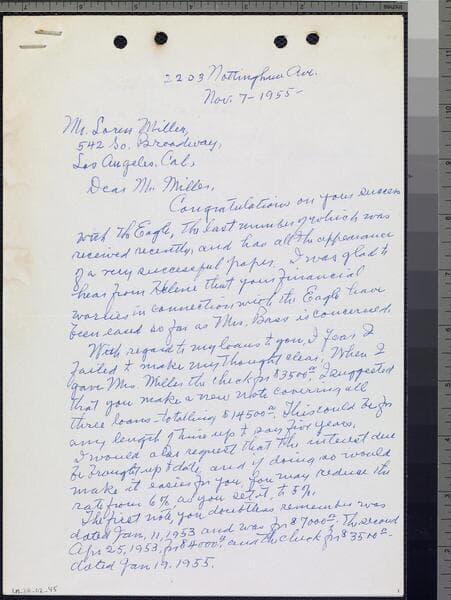 2203 Nottingham Ave.
Nov. 7-1955-
Mr. Loren Miller,
542 So. Broadway,
Los Angeles. Cal,
Dear Mr. Miller,
Congratulations on your success
with the Eagle, the last number of which was
received recently, and has all the appearance
of a very successful paper. I was glad to
hear from Helene that your financial
worries in connection with the Eagle have
been eased so far as Mrs. Bass is concerned.
With regard to my loans to you, I fear I
failed to make my thought clear. When I
gave Mrs. Miller the check for $3500.00, I suggested
that you make a new note covering all
three loans - totalling $14500.00. This could be for
any length of time up to say five years.
I would also request that the interest due
be brought up to date, and if doing so would
make it easier for you, you may reduce the
rate from 6% as you set it, to 5%.
The first note, you doubtless remember was
dated Jan, 11, 1953 and was for $7000.00, the second
Apr 25, 1953, for $4000.00 and the check for $3500-
dated Jan 19. 1955.